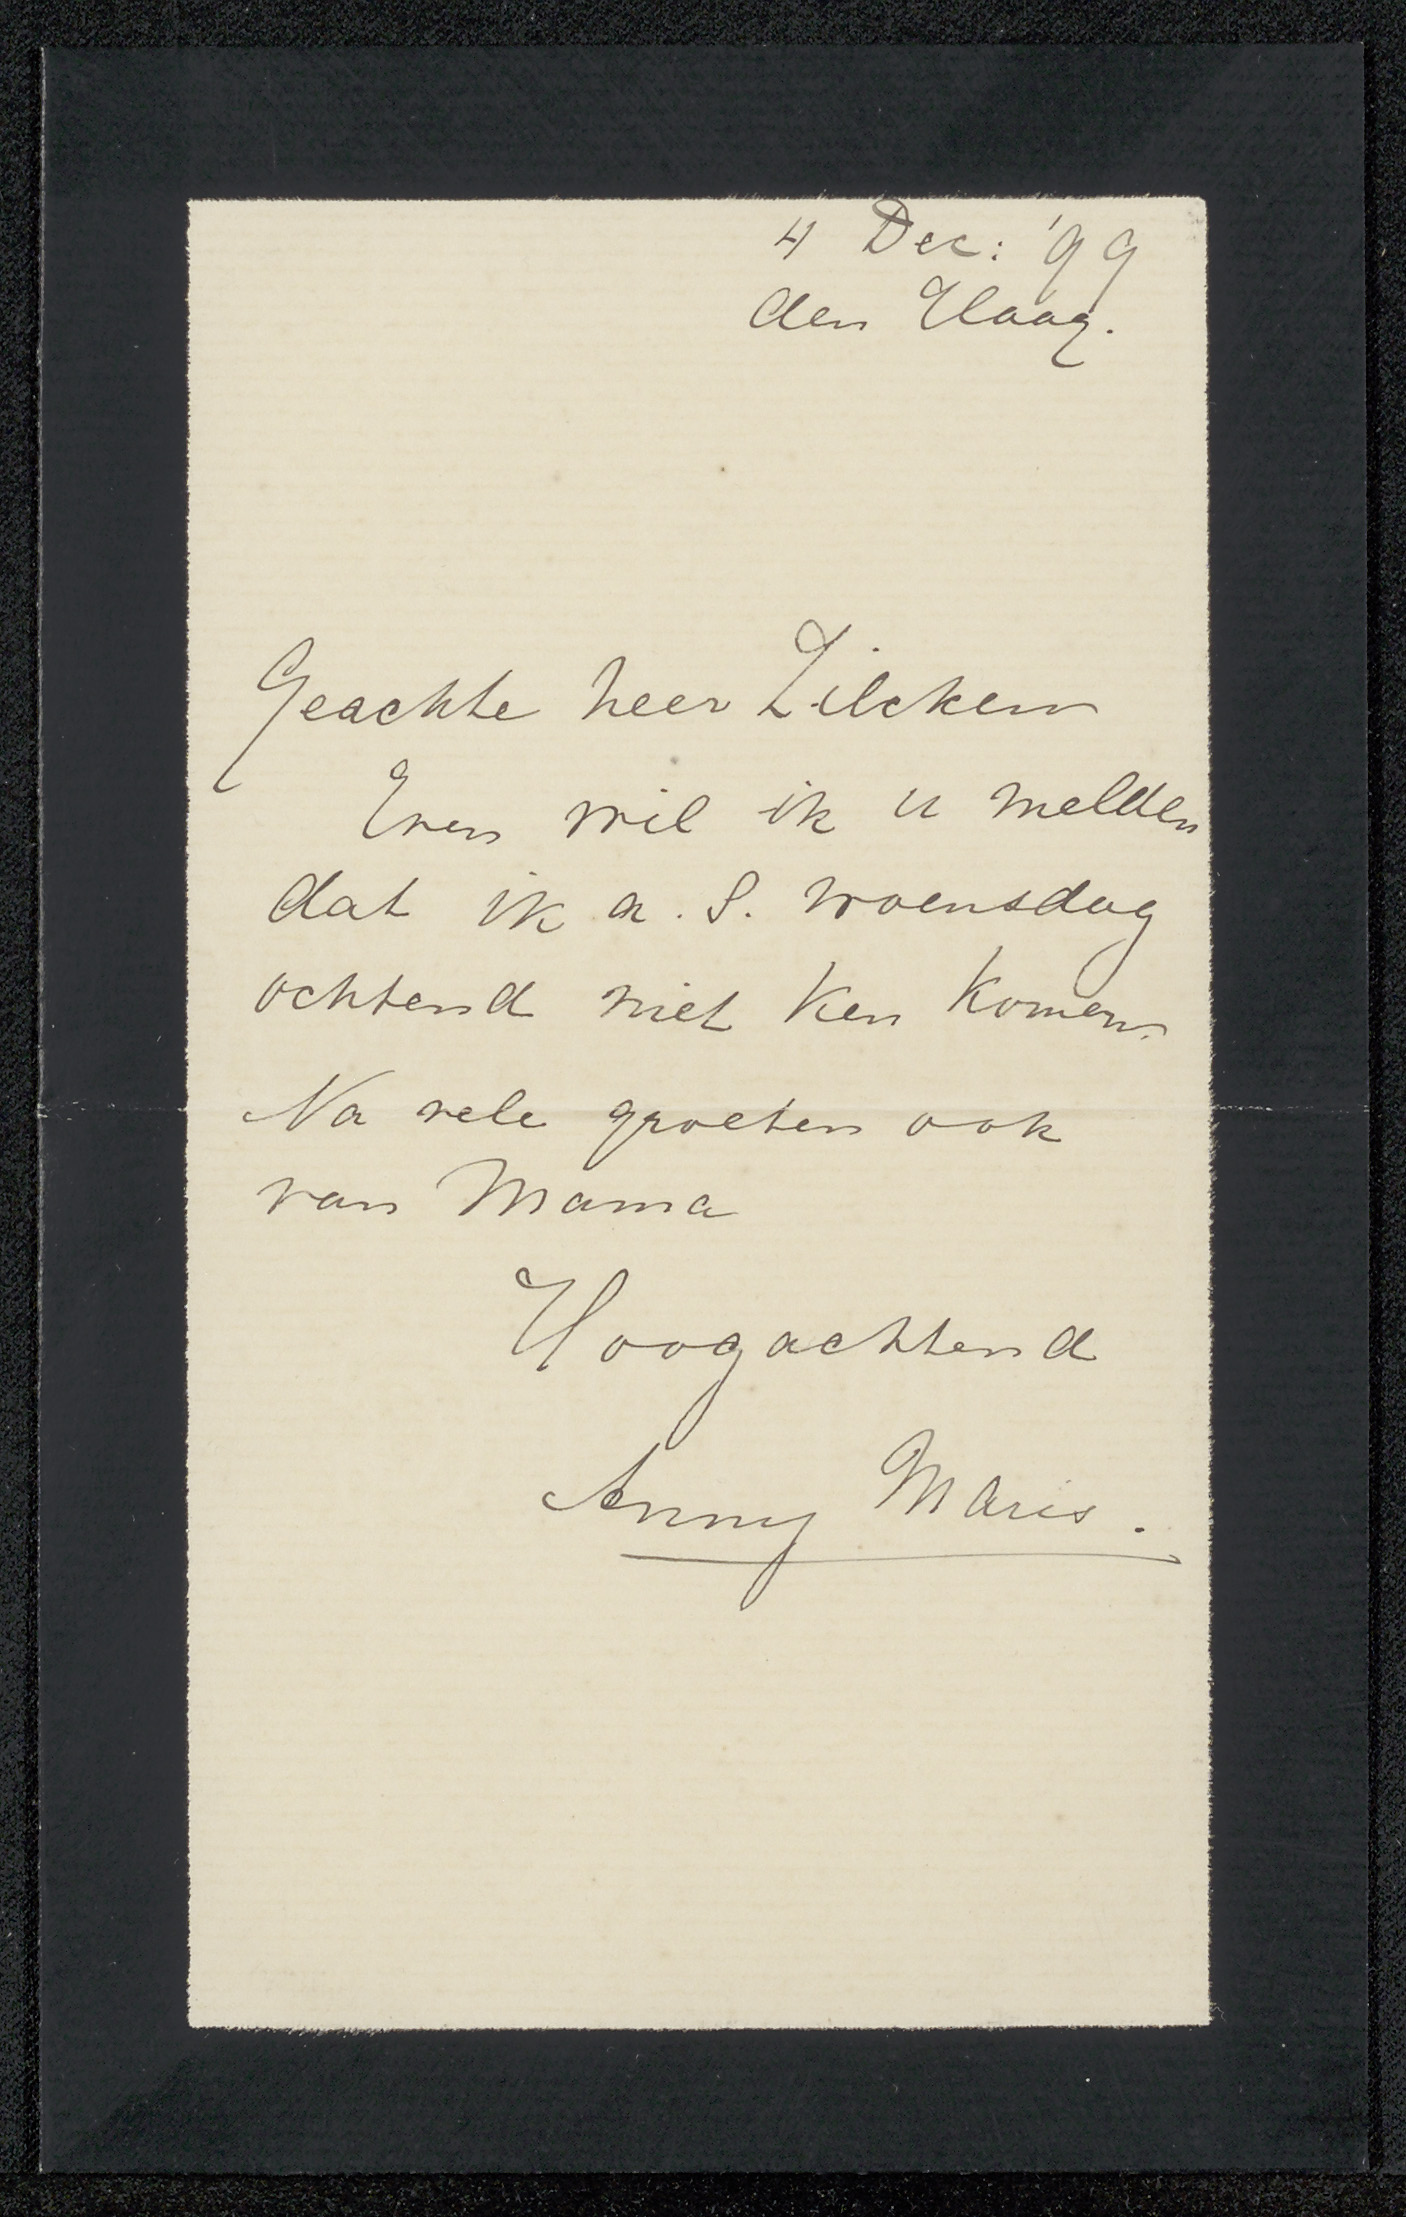 4 Dec: '99
den Haag.
Geachte heer Zilcken
Even wil ik u melden
dat ik a.s. woensdag
ochtend niet ken komen.
Na vele groeten ook
van Mama
Hoogachtend
Anny Maris.